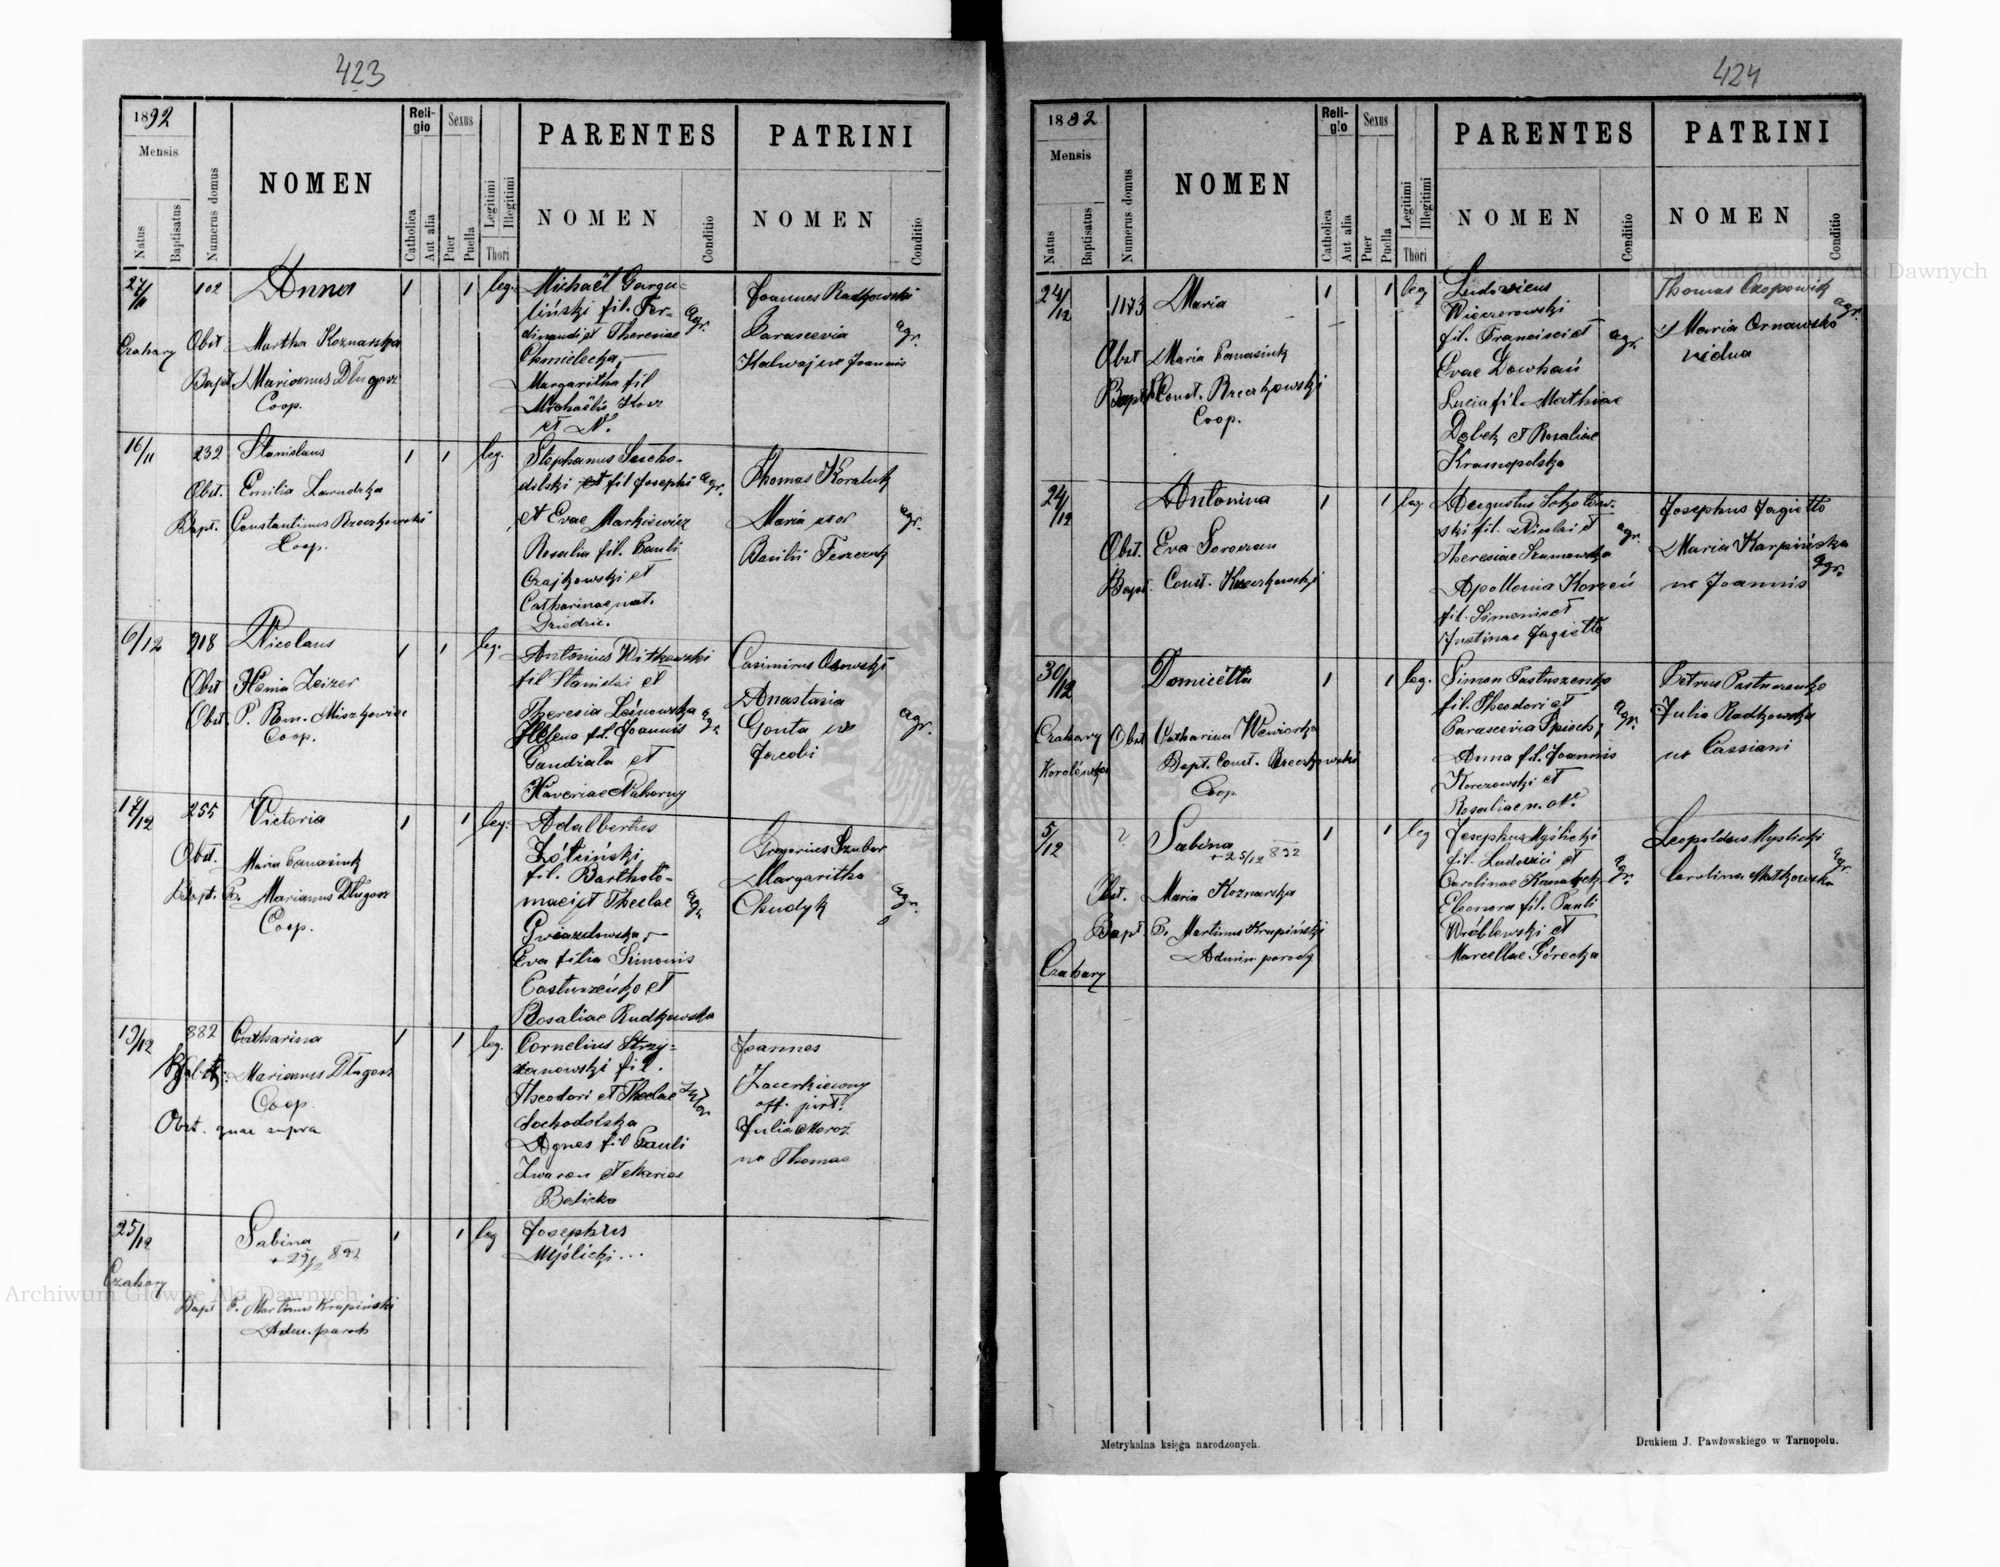 423
1892
Mensis
Natus
Baptisatus
Numerus domus
NOMEN
Reli-
gio
Catholica
Aut alia
Sexus
Puer
Puella
Legitimi
Illegitimi
Thori
PARENTES
NOMEN
Conditio
PATRINI
NOMEN
Conditio
27/11
102
Anna
1
1
leg.
Michaël Gargu-
liński fil. Fer-
dinandi et Theresiae
Chmielecka,
Margaritha fil
Michaëlis Kosz
et N.
agr.
Joannes Radkowski
Parascevia
Kalwaj ux Joannis
agr.
Czahary
Obst
Martha Koznarska
Bapt
Marianus Długosz
Coop.
16/11
232
Stanislaus
1
1
leg.
Stephanus Sucho-
dolski et fil Josephi
et Evae Markiewicz
Rosalia fil. Pauli
Czajkowski et
Catharinae nat.
Dziedzic.
agr.
Thomas Koraluk
Maria uxor
Basilii Teszczuk
agr.
Obst.
Emilia Zarudzka
Bapt.
Constantinus Breczkowski
Coop.
6/12
918
Nicolaus
1
1
leg.
Antonius Witkowski
fil Stanislai et
Theresia Leśnowska
Helena fil. Joannis
Gandziala et
Xaveriae Nahorny
agr.
Casimirus Osowski
Anastasia
Gonta ux
Jacobi
agr.
Obst
Hania Zeizer
Obst.
P. Rom. Miszkowicz
Coop.
17/12
255
Victoria
1
1
leg.
Adalbertus
Żółciński
fil. Bartholo-
maei et Theclae
Gwiazdowska,
Eva filia Simonis
Pastuszeńko et
Rosaliae Rudkowska
agr.
Gregorius Szuber
Margaritha
Chudyk
agr.
Obst.
Maria Panasiuk
Bapt. P.
Marianus Długosz
Coop.
19/12
882
Catharina
1
1
leg.
Cornelius Strzy-
żanowski fil.
Theodori et Theclae
Suchodolska
Agnes fil Pauli
Zwaron et Mariae
Belicka
Joannes
Zacerkiewny
off. privt.
Julia Moroz
ux Thomae
Marianus Długosz
Coop.
Obst. quae supra
25/12
Sabina
+ 25/12 892
1
1
leg
Josephus
Myślicki...
Czahary
Bapt P. Martinus Krupiński
Adm. paroch
424
1892
Mensis
Natus
Baptisatus
Numerus domus
NOMEN
Reli-
gio
Catholica
Aut alia
Sexus
Puer
Puella
Legitimi
Illegitimi
Thori
PARENTES
NOMEN
Conditio
PATRINI
NOMEN
Conditio
Archiwum Główne Akt Dawnych
24/12
1173
Maria
1
1
leg
Ludovicus
Wieczorowski
fil. Francisci et
Evae Dowhań
Lucia fil. Mathiae
Dąbek et Rosaliae
Krasnopolska
agr.
Thomas Czopowik
Maria Ornawska
vidua
agr.
Obst
Maria Panasiuk
Bapt
Const. Breczkowski
Coop.
24/12
Antonina
1
1
leg.
Augustus Sokołow-
ski fil. Nicolai et
Theresiae Szumowska
Apollonia Korzeń
fil. Simonis et
Justinae Jagiełło
agr.
Josephus Jagiełło
Maria Karpińska
ux Joannis
agr.
Obst.
Eva
Bapt.
Const. Breczkowski
30/12
Domicella
1
1
leg.
Simon Pastuszenko
fil. Theodori et
Parascevia Śpiech;
Anna fil. Joannis
Korczowski et
Rosaliae n. N.
agr.
Petrus Pastuszenko
Julia Radkowska
ux Cassiani
Czahary
Korolówka
Obst
Catharina Wewiorka
Bapt. Const. Breczkowski
Coop
5/12
?
Sabina
+ 25/12 892
1
1
leg
Josephus Myślicki
fil. Ludovici et
Carolinae
Eleonora fil. Pauli
Wróblewski et
Marcellae Górecka
agr.
Leopoldus Myslicki
Carolina Matkowska
agr.
Obst.
Maria Koznarska
Bapt.
P. Martinus Krupiński
Admin parochy
Czahary
Archiwum Główne Akt Dawnych
Metrykalna księga narodzonych.
Drukiem J. Pawłowskiego w Tarnopolu.